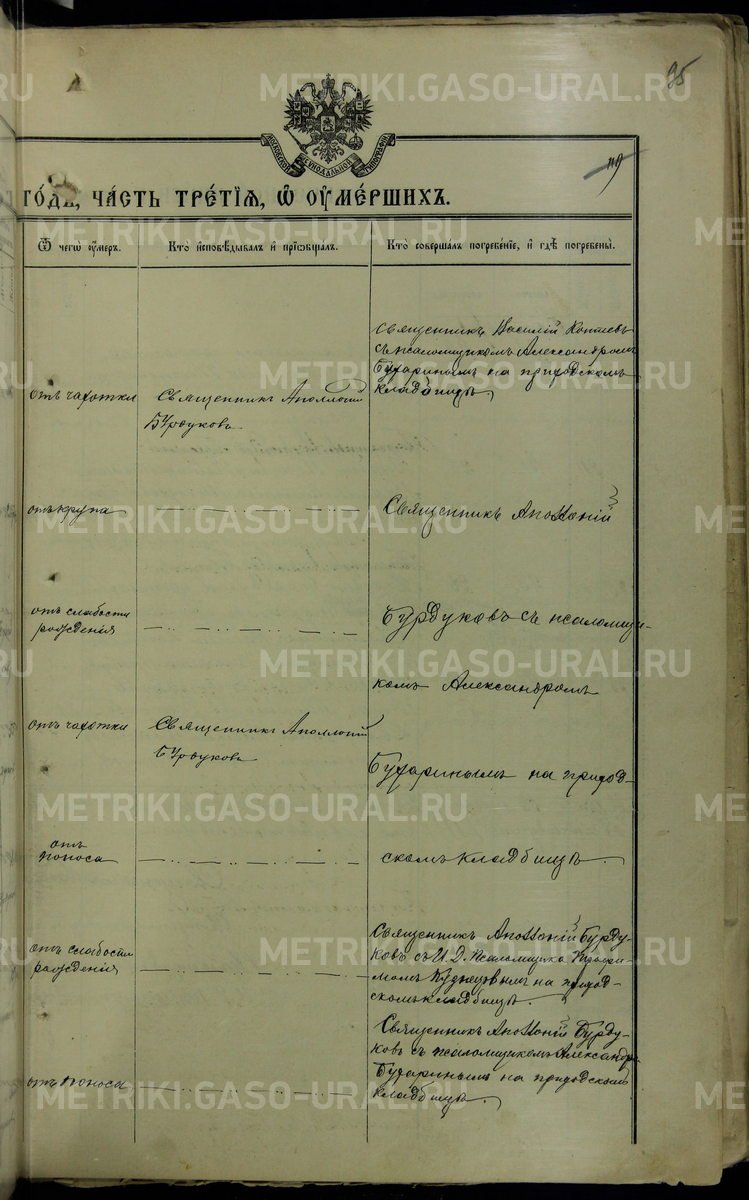 95
119
METRIKI.GASO-URAL.RU
МОСКОВСКОЙ СѴНОДАЛЬНОЙ ТИПОГРАФІИ
го́дъ, ча́сть тре́тїѧ, ѡ҆ ᲂу҆ме́ршихъ.
Ѿ чегѡ̀ ᲂу҆́меръ.
Кто̀ и҆сповѣ́дывалъ и҆ прїѡбща́лъ.
Кто̀ соверша́лъ погребе́нїе, и҆ гдѣ̀ погребены̀.
отъ чахотки
Священникъ Аполлоній
Бурдуковъ
Священникъ Василій
съ псаломщикомъ Александромъ
Бухаринымъ на приходскомъ
кладбищѣ
отъ крупа
Священникъ Аполлоній
отъ слабости
рожденія
Бурдуковъ съ псаломщи-
комъ Александромъ
отъ чахотки
Священникъ Аполлоній
Бурдуковъ
Бухаринымъ на приход-
отъ
поноса
скомъ кладбищѣ.
отъ слабости
рожденія
Священникъ Аполлоній Бурду-
ковъ съ И. Д. Псаломщика
Кузнецовымъ на приход-
скомъ кладбищѣ.
отъ поноса
Священникъ Аполлоній Бурду-
ковъ съ псаломщикомъ Александр
Бухаринымъ на приходскомъ
кладбищѣ.